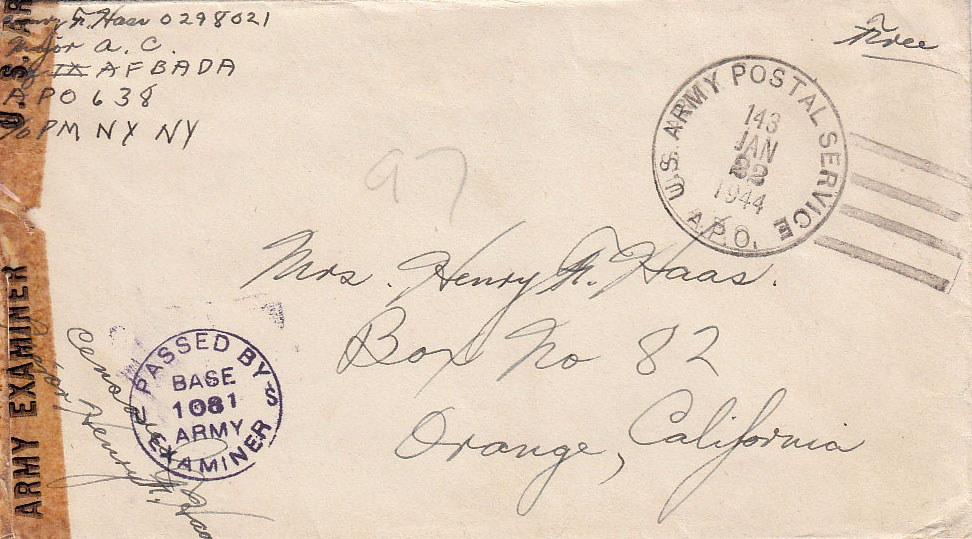 Henry F. Haas 0298021
Major A. C.
IX AFBADA
APO 638
c/o PM NY NY
Free
U.S. ARMY POSTAL SERVICE
143
JAN
22
1944
A.P.O.
97
Mrs. Henry F. Haas.
Box No 82
Orange, California
PASSED BY
BASE
1081
ARMY
EXAMINER
Censored
Henry F. Haas
U.S. AR
ARMY EXAMINER